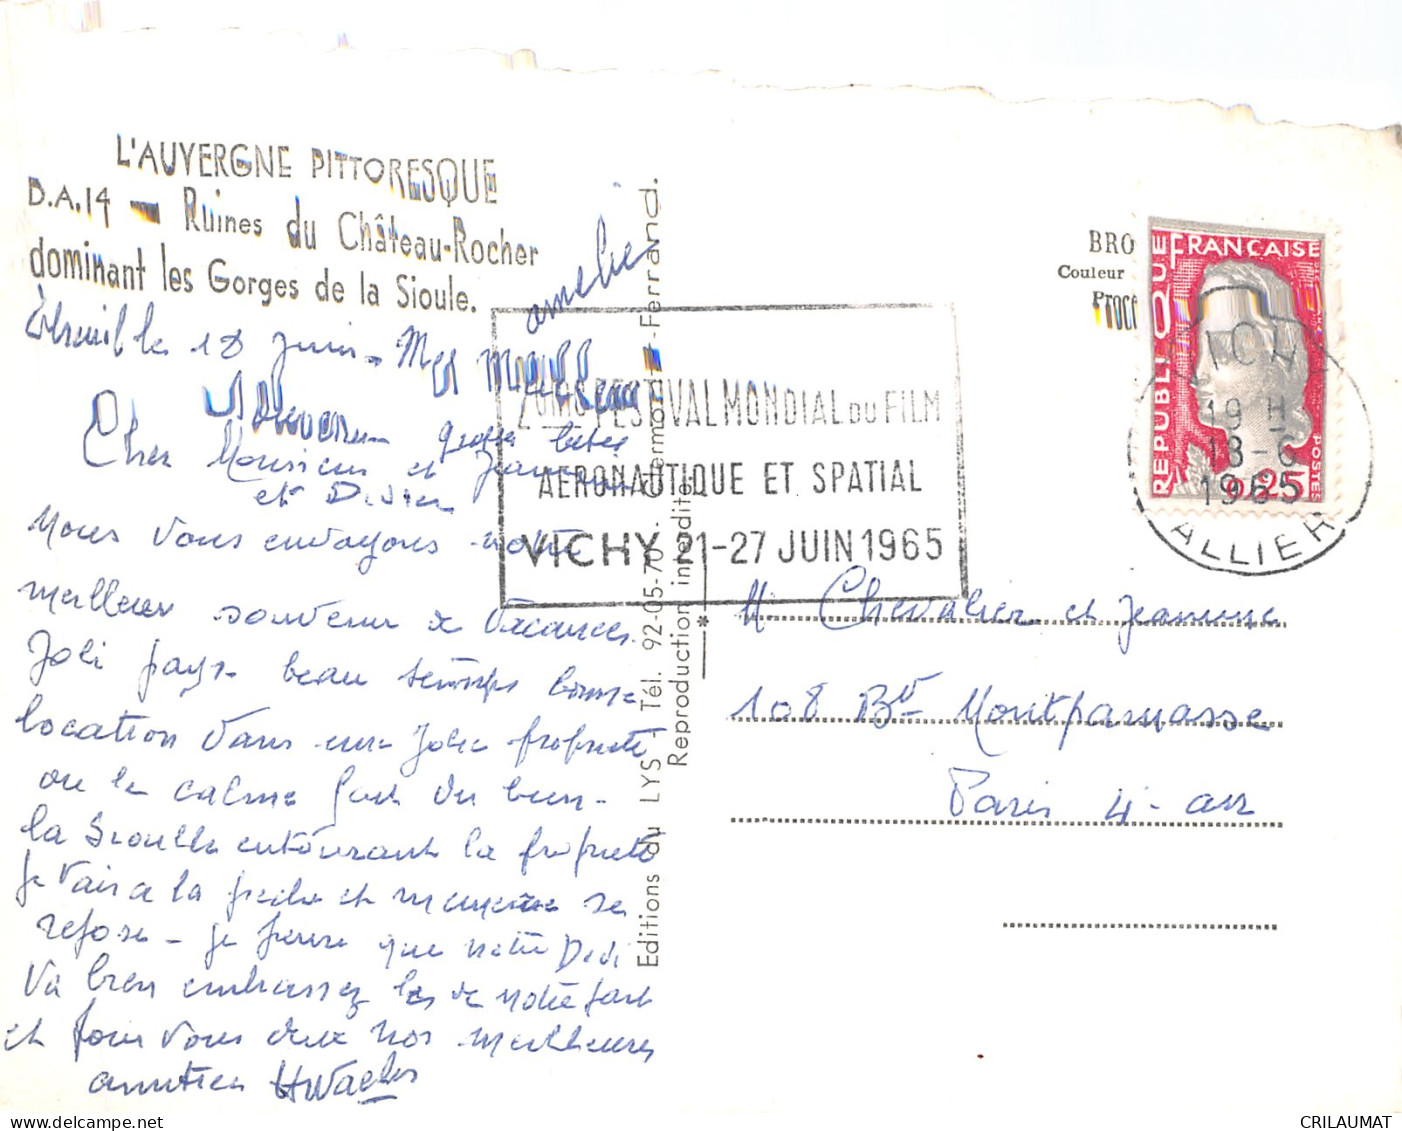 L'AUVERGNE PITTORESQUE
D.A.14 — Ruines du Château-Rocher
dominant les Gorges de la Sioule.
le 18 Juin
Cher Monsieur et Jeanne
et Didier
grosses bises
Nous vous envoyons notre
meilleur souvenir de vacances.
Joli pays beau temps bonne
location dans une jolie propriété
ou le calme fait du bien -
la Sioulle entourant la propriété
je vais a la peche et memere se
repose - je pense que notre Dedi
va bien embrassez le de notre part
et pour vous deux nos meilleures
amities
Editions du LYS - Tél. 92-05-70 - Clermont-Ferrand.
Reproduction interdite
FESTIVAL MONDIAL DU FILM
AERONAUTIQUE ET SPATIAL
VICHY 21-27 JUIN 1965
BRO
Couleur
Procé
REPUBLIQUE FRANÇAISE
0,25
POSTES
19 H
18-6
1965
ALLIER
M. Chevalier et Jeanne
108 Bd Montparnasse
Paris 14e arr
CRILAUMAT